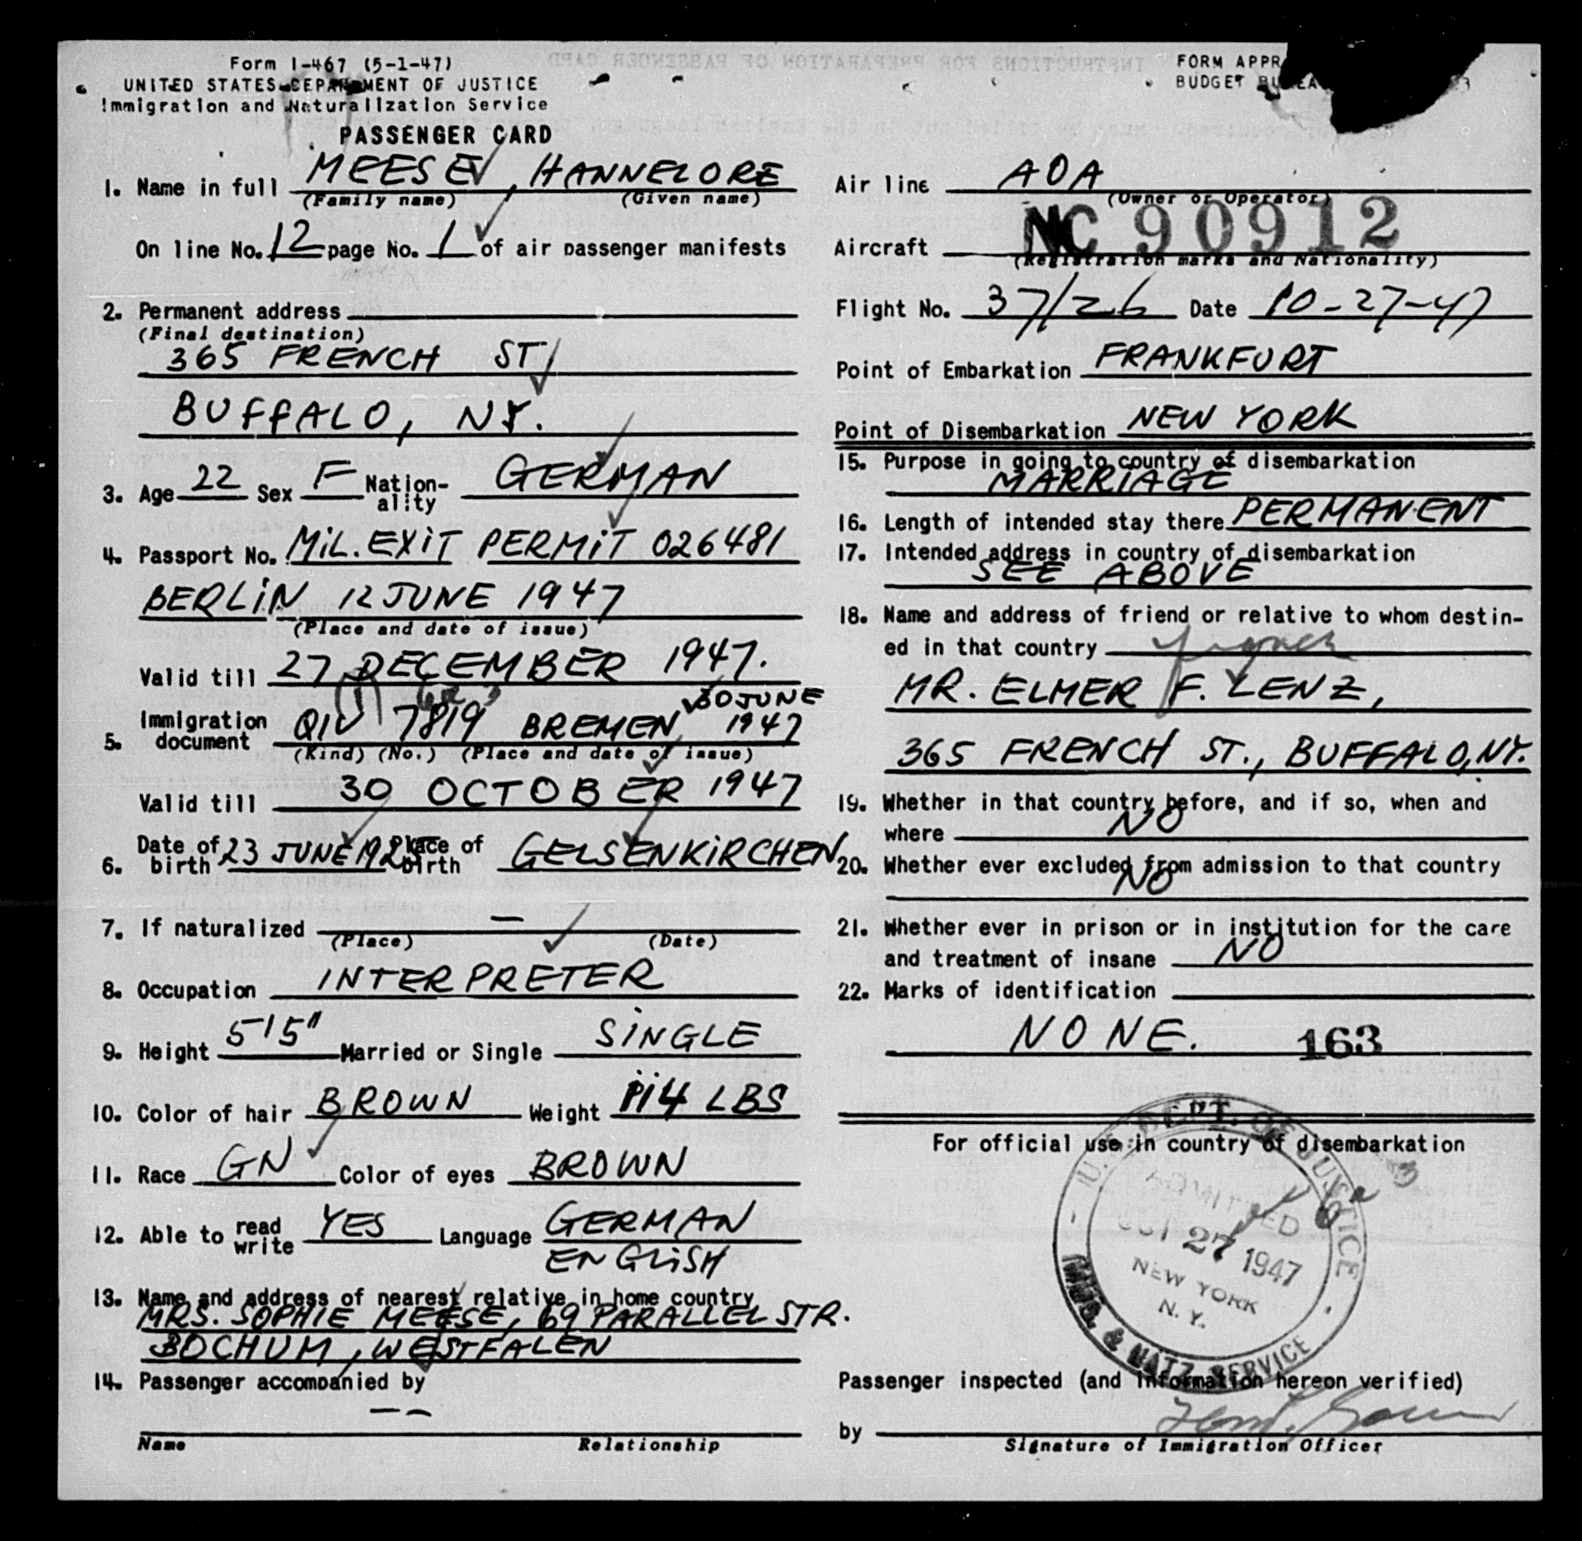 Form I-467 (5-1-47)
UNITED STATES DEPARTMENT OF JUSTICE
Immigration and Naturalization Service
PASSENGER CARD
1. Name in full MEESE, HANNELORE
(Family name) (Given name)
On line No. 12 page No. 1 of air passenger manifests
2. Permanent address
(Final destination)
365 FRENCH ST
BUFFALO, NY.
3. Age 22 Sex F Nation-ality GERMAN
4. Passport No. MIL. EXIT PERMIT 026481
BERLIN 12 JUNE 1947
(Place and date of issue)
Valid till 27 DECEMBER 1947.
5. Immigration document QIV 7819 BREMEN 30 JUNE 1947
(Kind) (No.) (Place and date of issue)
Valid till 30 OCTOBER 1947
6. Date of birth 23 JUNE 1925 Place of birth GELSENKIRCHEN
7. If naturalized —
(Place) (Date)
8. Occupation INTERPRETER
9. Height 5'5" Married or Single SINGLE
10. Color of hair BROWN Weight 114 LBS
11. Race GN Color of eyes BROWN
12. Able to read write YES Language GERMAN
ENGLISH
13. Name and address of nearest relative in home country
MRS. SOPHIE MEESE, 69 PARALLEL STR.
BOCHUM, WESTFALEN
14. Passenger accompanied by
— —
Name Relationship
FORM APPR
BUDGET
Air line AOA
(Owner or Operator)
Aircraft NC 90912
(Registration marks and Nationality)
Flight No. 37/26 Date 10-27-47
Point of Embarkation FRANKFURT
Point of Disembarkation NEW YORK
15. Purpose in going to country of disembarkation
MARRIAGE
16. Length of intended stay there PERMANENT
17. Intended address in country of disembarkation
SEE ABOVE
18. Name and address of friend or relative to whom destin-
ed in that country
MR. ELMER F. LENZ,
365 FRENCH ST., BUFFALO, NY.
19. Whether in that country before, and if so, when and
where NO
20. Whether ever excluded from admission to that country
NO
21. Whether ever in prison or in institution for the care
and treatment of insane NO
22. Marks of identification
NONE. 163
For official use in country of disembarkation
U.S. DEPT. OF JUSTICE
ADMITTED
OCT 27 1947
NEW YORK
N. Y.
IMMIG. & NATZ. SERVICE
Passenger inspected (and information hereon verified)
by
Signature of Immigration Officer